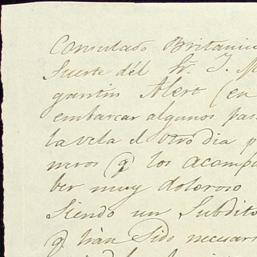 Consulado Britanic
Suerte dél Sr. J. M
gantin Alero (en
embarcar algunos pas
la vela el otro dia p
meros q̃ los acomp
ber muy doloroso
Siendo un Subdito
q̃ hàn Sido necesar